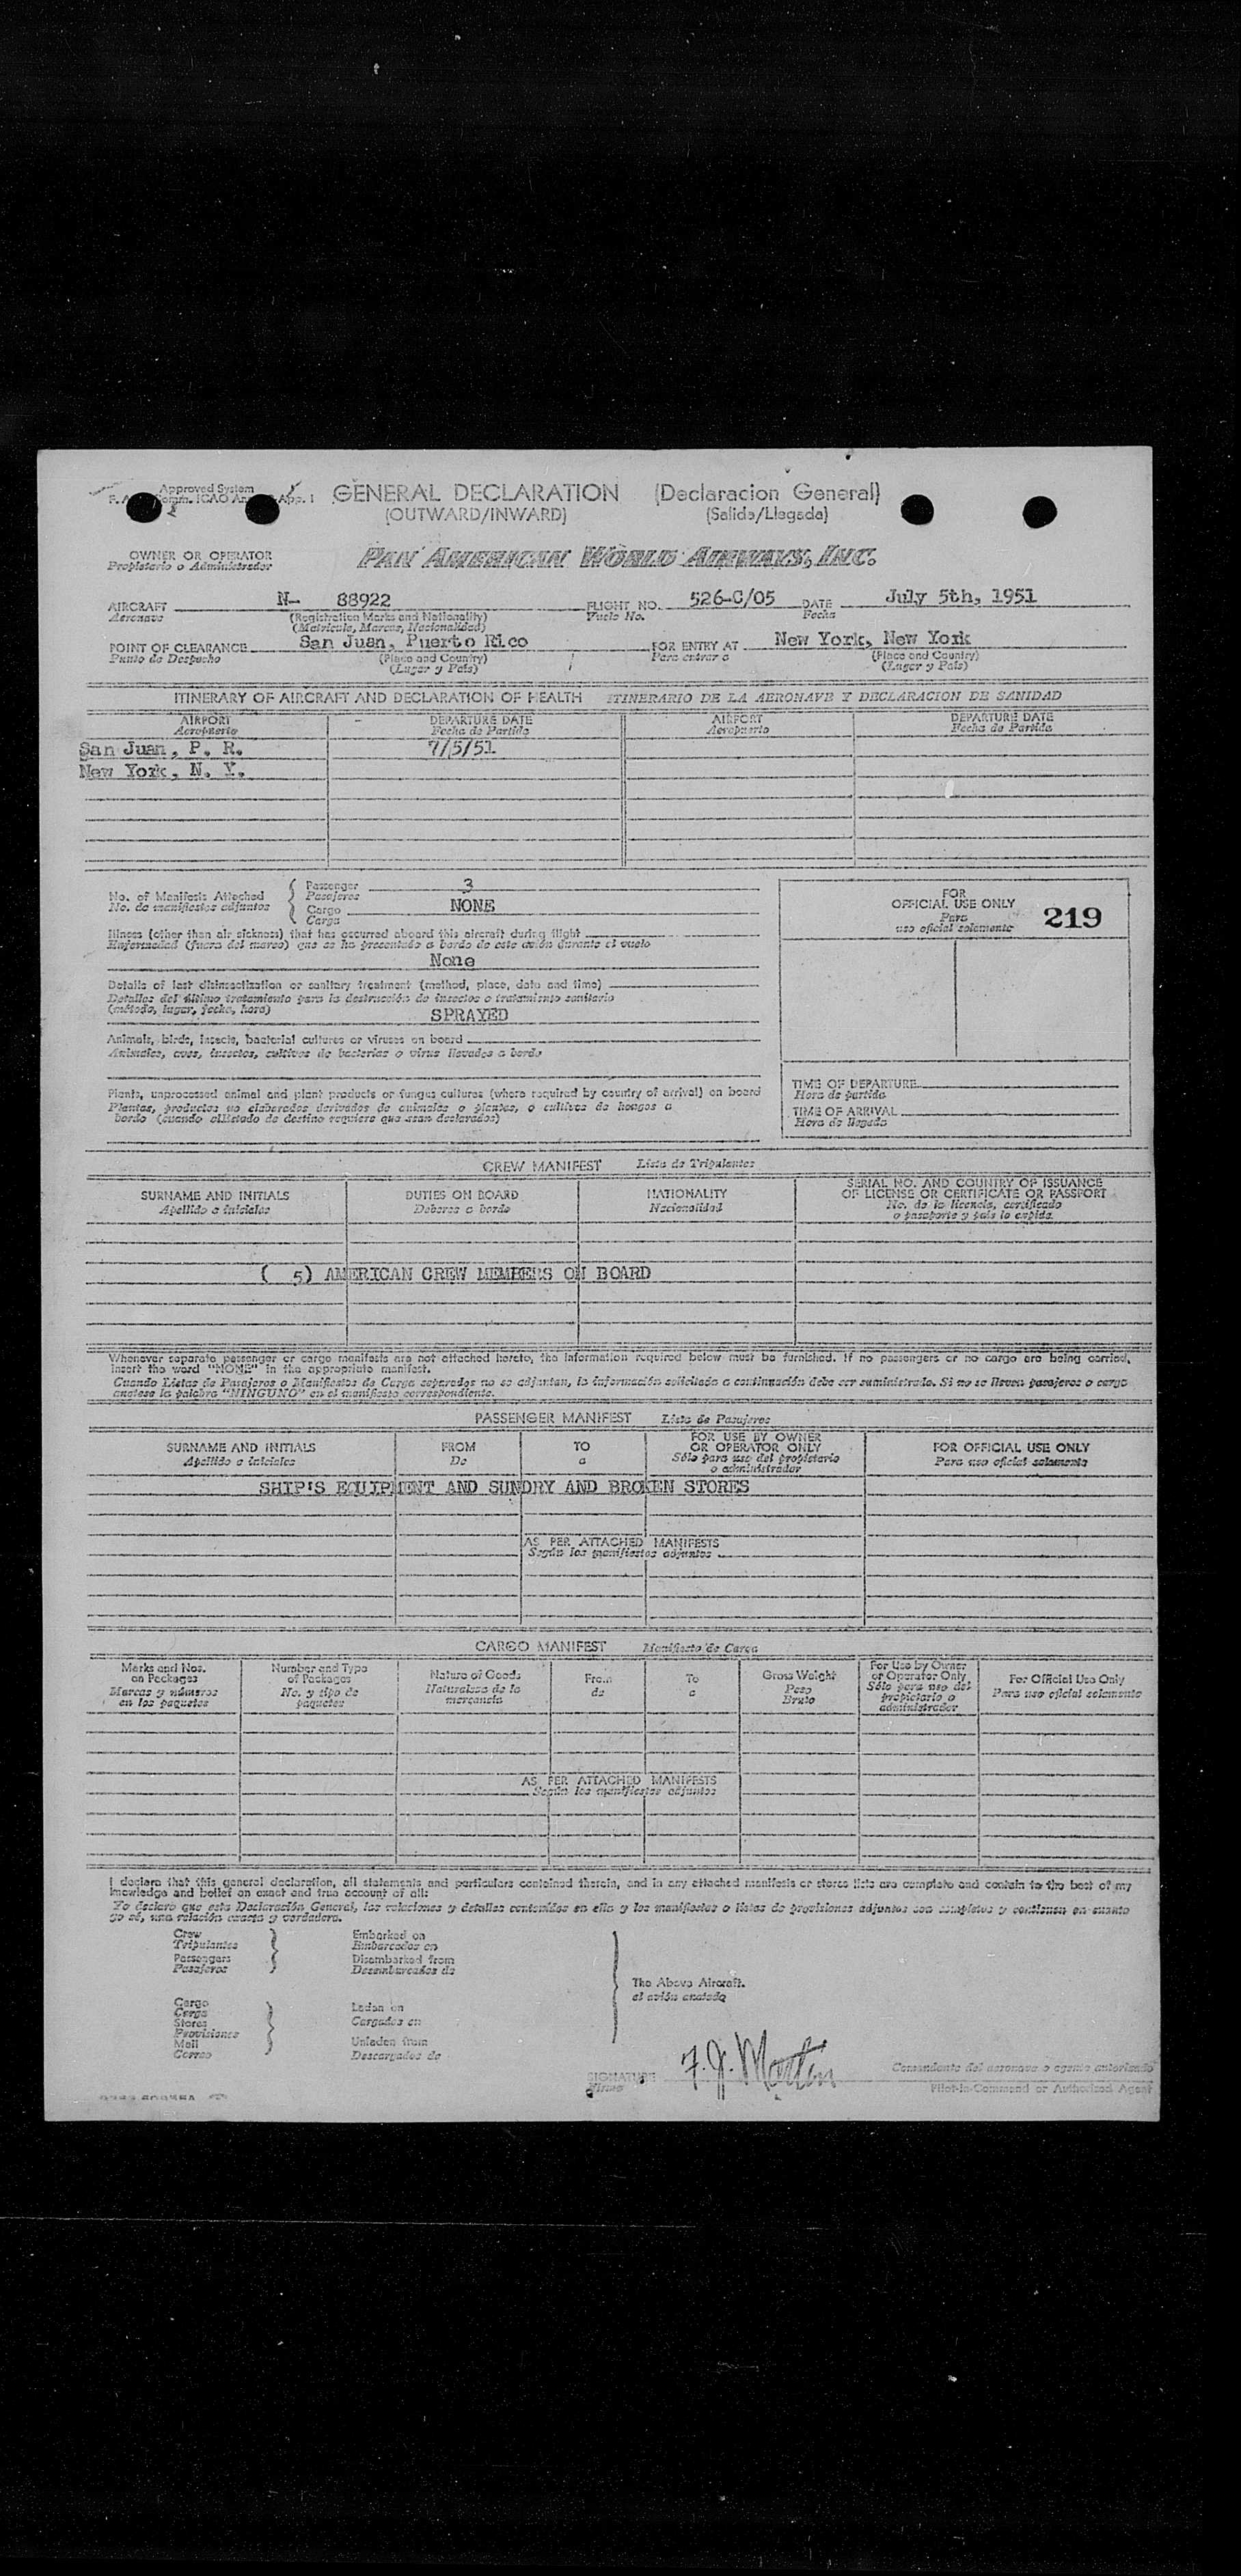 Approved System
GENERAL DECLARATION (Declaracion General)
(OUTWARD/INWARD) (Salida/Llegada)
OWNER OR OPERATOR
Propietario o Administrador
PAN AMERICAN WORLD AIRWAYS, INC.
AIRCRAFT N- 88922 FLIGHT NO. 526-C/05 DATE July 5th, 1951
Aeronave (Registration Marks and Nationality) Vuelo No. Fecha
(Matricula, Marcas, Nacionalidad)
POINT OF CLEARANCE San Juan, Puerto Rico FOR ENTRY AT New York, New York
Punto de Despacho (Place and Country) Para entrar a (Place and Country)
(Lugar y País) (Lugar y País)
ITINERARY OF AIRCRAFT AND DECLARATION OF HEALTH ITINERARIO DE LA AERONAVE Y DECLARACION DE SANIDAD
AIRPORT DEPARTURE DATE AIRPORT DEPARTURE DATE
Aeropuerto Fecha de Partida Aeropuerto Fecha de Partida
San Juan, P. R. 7/5/51
New York, N. Y.
No. of Manifests Attached Passenger 3
No. de manifiestos adjuntos Pasajeros
Cargo NONE
Carga
FOR
OFFICIAL USE ONLY
Para
uso oficial solamente
219
Illness (other than air sickness) that has occurred aboard this aircraft during flight
Enfermedad (fuera del mareo) que se ha presentado a bordo de este avión durante el vuelo
None
Details of last disinsectization or sanitary treatment (method, place, date and time)
Detalles del último tratamiento para la destrucción de insectos o tratamiento sanitario
(método, lugar, fecha, hora)
SPRAYED
Animals, birds, insects, bacterial cultures or viruses on board
Animales, aves, insectos, cultivos de bacterias o virus llevados a bordo
Plants, unprocessed animal and plant products or fungus cultures (where required by country of arrival) on board
Plantas, productos no elaborados derivados de animales o plantas, o cultivos de hongos a
bordo (cuando el Estado de destino requiere que sean declarados)
TIME OF DEPARTURE
Hora de partida
TIME OF ARRIVAL
Hora de llegada
CREW MANIFEST Lista de Tripulantes
SURNAME AND INITIALS DUTIES ON BOARD NATIONALITY SERIAL NO. AND COUNTRY OF ISSUANCE
OF LICENSE OR CERTIFICATE OR PASSPORT
Apellido e iniciales Deberes a bordo Nacionalidad No. de la licencia, certificado
o pasaporte y país lo expida.
( 5) AMERICAN CREW MEMBERS ON BOARD
Whenever separate passenger or cargo manifests are not attached hereto, the information required below must be furnished. If no passengers or no cargo are being carried,
insert the word "NONE" in the appropriate manifest.
Cuando Listas de Pasajeros o Manifiestos de Carga separados no se adjuntan, la información solicitada a continuación debe ser suministrada. Si no se llevan pasajeros o carga
anotese la palabra "NINGUNO" en el manifiesto correspondiente.
PASSENGER MANIFEST Lista de Pasajeros
SURNAME AND INITIALS FROM TO FOR USE BY OWNER
OR OPERATOR ONLY FOR OFFICIAL USE ONLY
Apellido e iniciales De a Sólo para uso del propietario
o administrador Para uso oficial solamente
SHIP'S EQUIPMENT AND SUNDRY AND BROKEN STORES
AS PER ATTACHED MANIFESTS
Según los manifiestos adjuntos
CARGO MANIFEST Manifiesto de Carga
Marks and Nos.
on Packages
Marcas y números
en los paquetes
Number and Type
of Packages
No. y tipo de
paquetes
Nature of Goods
Naturaleza de la
mercancía
From
de
To
a
Gross Weight
Peso
Bruto
For Use by Owner
or Operator Only
Sólo para uso del
propietario o
administrador
For Official Use Only
Para uso oficial solamente
AS PER ATTACHED MANIFESTS
Según los manifiestos adjuntos
I declare that this general declaration, all statements and particulars contained therein, and in any attached manifests or stores lists are complete and contain to the best of my
knowledge and belief an exact and true account of all:
Yo declaro que esta Declaración General, las relaciones y detalles contenidos en ella y los manifiestos o listas de provisiones adjuntos son completos y contienen en cuanto
yo sé, una relación exacta y verdadera.
Crew Embarked on
Tripulantes Embarcados en
Passengers Disembarked from
Pasajeros Desembarcados de
The Above Aircraft.
el avión anotado
Cargo Laden on
Carga Cargados en
Stores
Provisiones
Mail Unladen from
Correo Descargados de
SIGNATURE F. J. Martin
Firma
Comandante del aeronave o agente autorizado
Pilot-in-Command or Authorized Agent